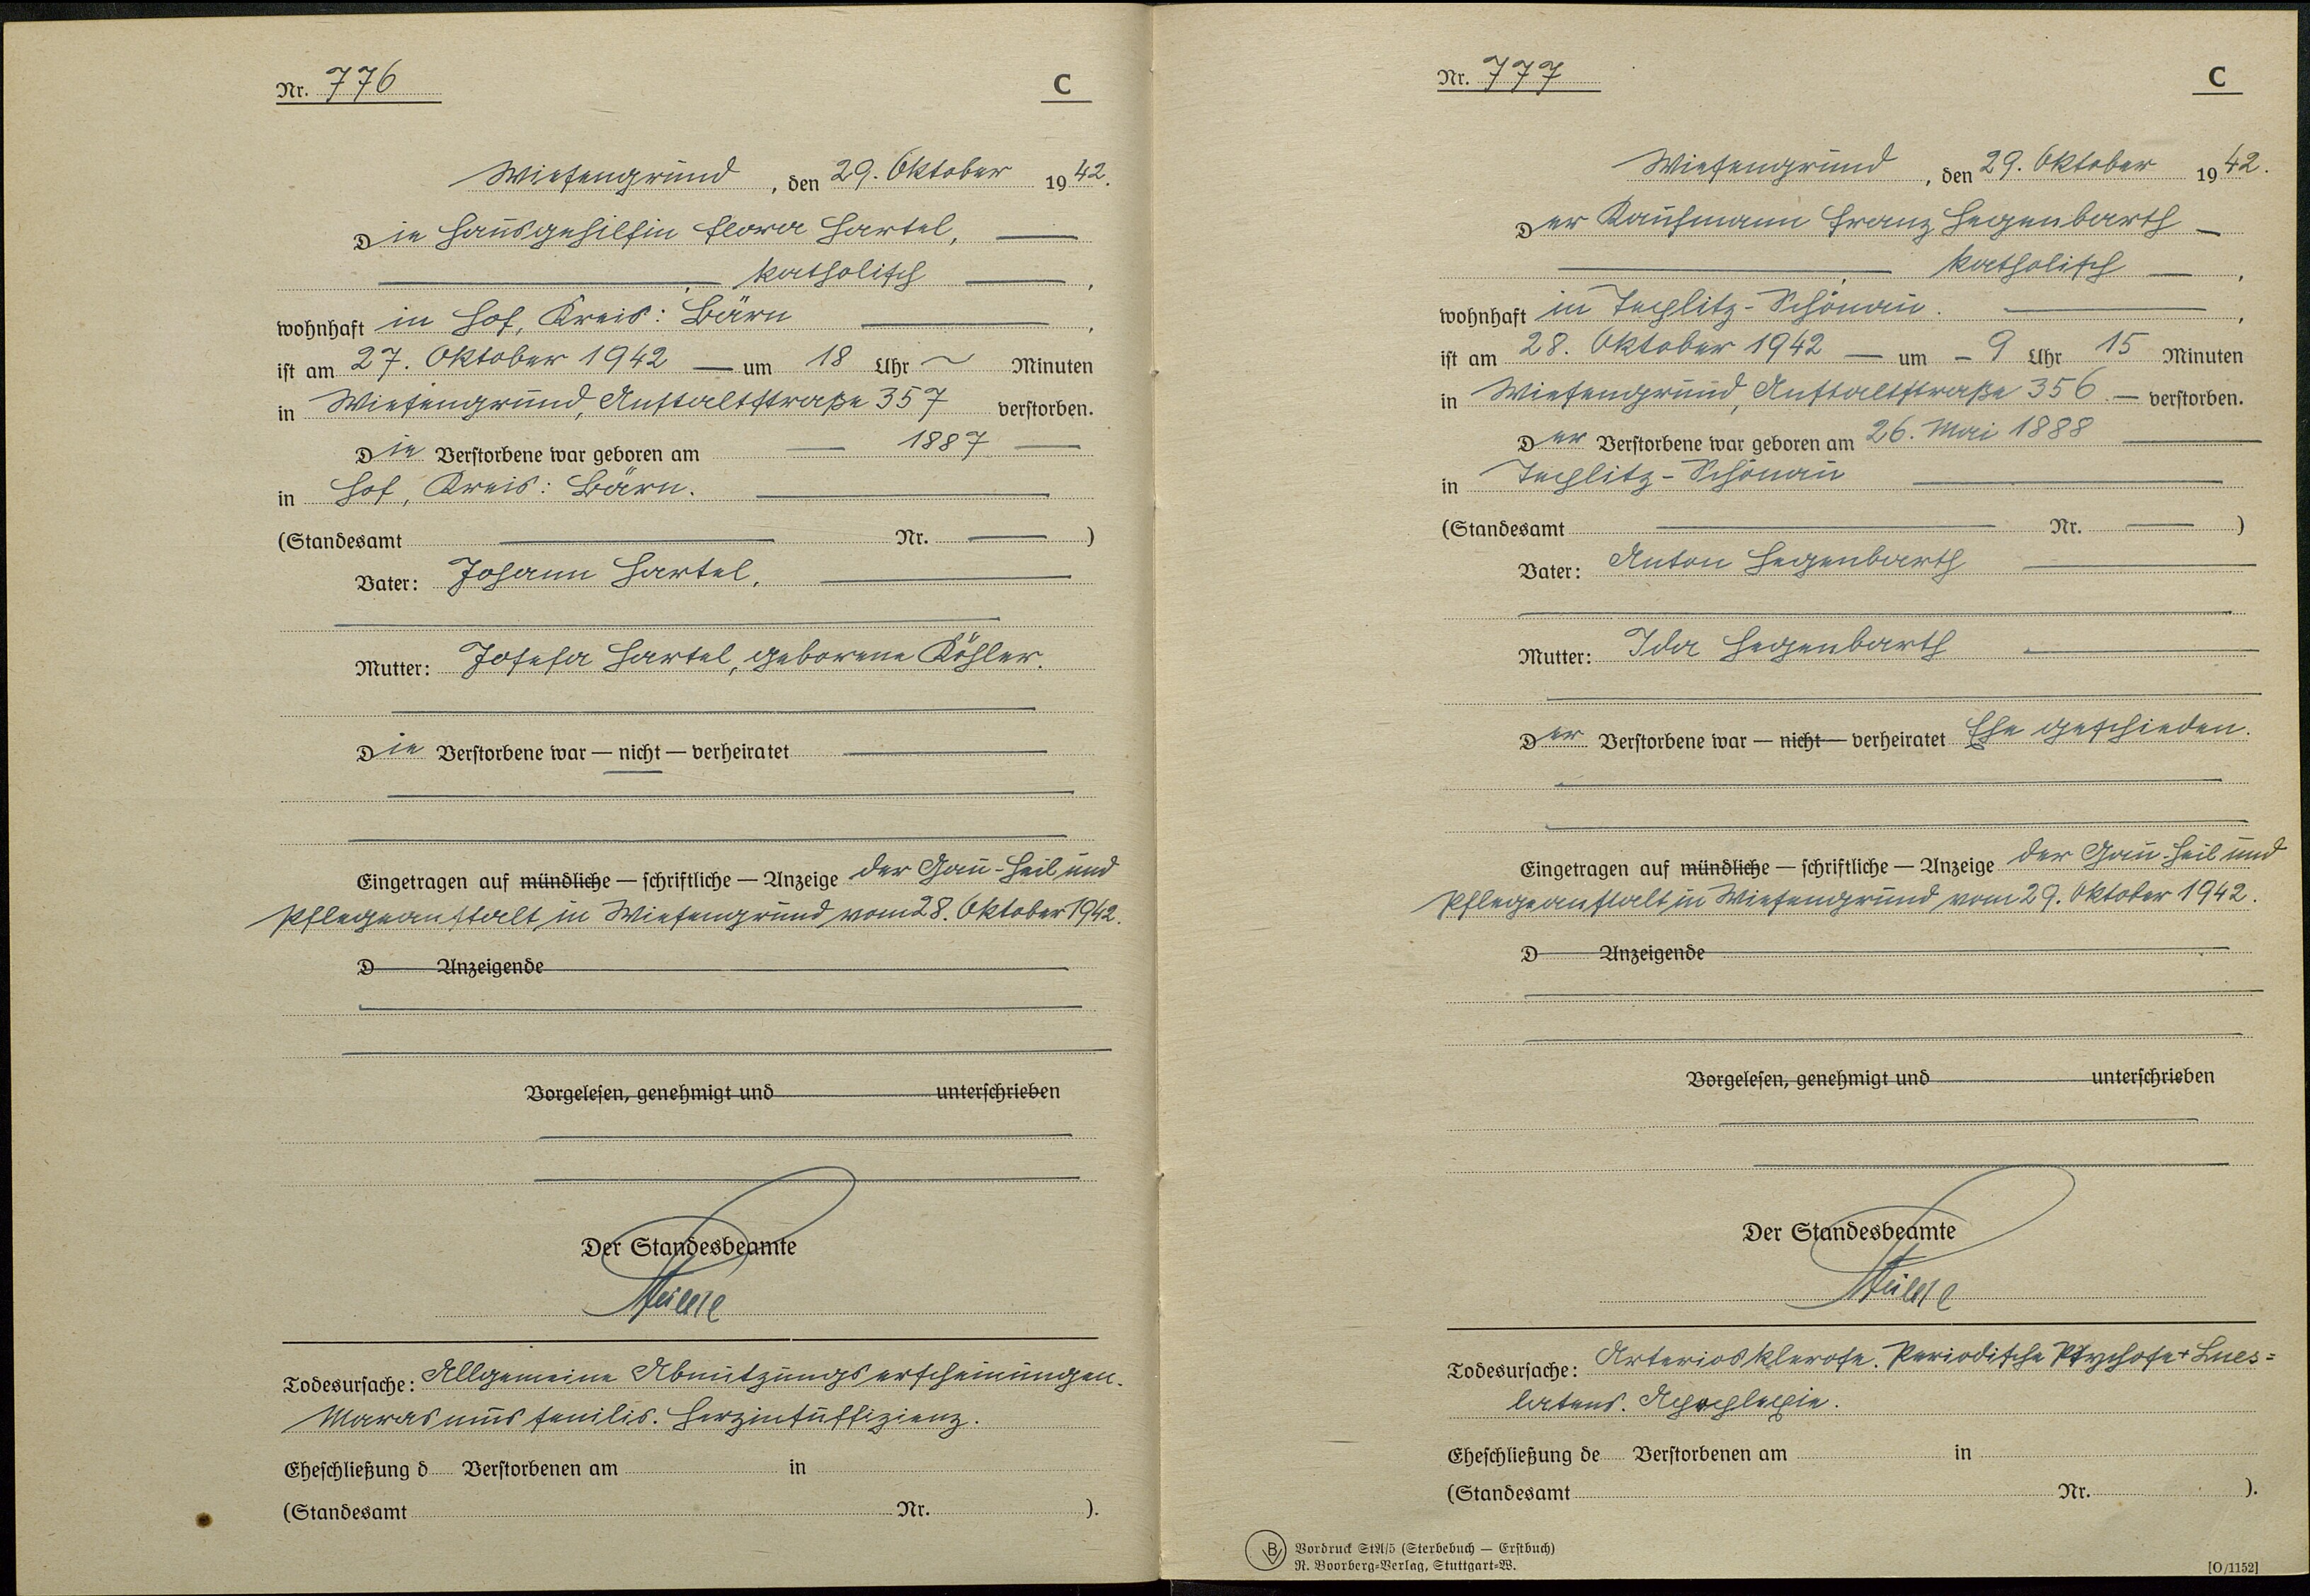 Nr. 776
C
Wiesengrund, den 29. Oktober 1942.
Die Hausgehilfin Flora Hartel,
katholisch,
wohnhaft in Hof, Kreis: Bärn,
ist am 27. Oktober 1942 um 18 Uhr Minuten
in Wiesengrund, Anstaltstraße 357 verstorben.
Die Verstorbene war geboren am 1887
in Hof, Kreis: Bärn.
(Standesamt Nr. )
Vater: Johann Hartel,
Mutter: Josefa Hartel, geborene Köhler.
Die Verstorbene war — nicht — verheiratet
Eingetragen auf mündliche — schriftliche — Anzeige der Gau-Heil und
Pflegeanstalt in Wiesengrund vom 28. Oktober 1942.
D Anzeigende
Vorgelesen, genehmigt und unterschrieben
Der Standesbeamte
Todesursache: Allgemeine Abnützungserscheinungen.
Marasmus senilis. Herzinsuffizienz.
Eheschließung d Verstorbenen am in
(Standesamt Nr. ).
Nr. 777
C
Wiesengrund, den 29. Oktober 1942.
Der Kaufmann Franz Hegenbarth
katholisch,
wohnhaft in Teplitz-Schönau.,
ist am 28. Oktober 1942 um 9 Uhr 15 Minuten
in Wiesengrund, Anstaltstraße 356 verstorben.
Der Verstorbene war geboren am 26. Mai 1888
in Teplitz-Schönau
(Standesamt Nr. )
Vater: Anton Hegenbarth
Mutter: Ida Hegenbarth
Der Verstorbene war — nicht — verheiratet Ehe geschieden.
Eingetragen auf mündliche — schriftliche — Anzeige der Gau-Heil und
Pflegeanstalt in Wiesengrund vom 29. Oktober 1942.
D Anzeigende
Vorgelesen, genehmigt und unterschrieben
Der Standesbeamte
Todesursache: Arteriosklerose. Periodische Psychose + Lues=
latens. Apoplexie.
Eheschließung de Verstorbenen am in
(Standesamt Nr. ).
B
V
Vordruck StA/5 (Sterbebuch — Erstbuch)
N. Boorberg-Verlag, Stuttgart-W.
[O/1152]